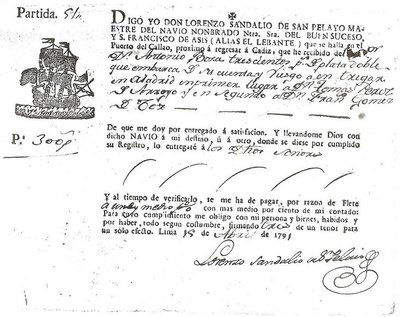 Partida. 51
DIGO YO DON LORENZO SANDALIO DE SAN PELAYO MA-
ESTRE DEL NAVIO NONBRADO Ntra. Sra. DEL BUEN SUCESO,
Y S. FRANCISCO DE ASIS (ALIAS EL LEBANTE) que se halla en el
Puerto del Callao, proximo á regresar á Cadiz, que he recibido del Señor
Dn. Antonio trescientos ps. plata doble
que embarca de su cuenta y riesgo a entregar
en primer lugar a Dn. Tomas Perez
D Arroyo y en segundo a Dn. Fran Gomez
D
Ps. 300
De que me doy por entregado á satisfacion. Y llevandome Dios con
dicho NAVIO á mi destino, ú á otro, donde se diese por cumplido
su Registro, lo entregaré á los dhos Señores
Y al tiempo de verificarlo, se me ha de pagar, por razon de Flete
a uno y medio con mas medio por ciento de mi contado:
Para cuyo cumplimiento me obligo con mi persona y bienes, habidos y
por haber, todo segun costumbre, firmando tres de un tenor para
un solo efecto. Lima 15 de Abril de 1791
Lorenzo Sandalio de Sn Pelayo